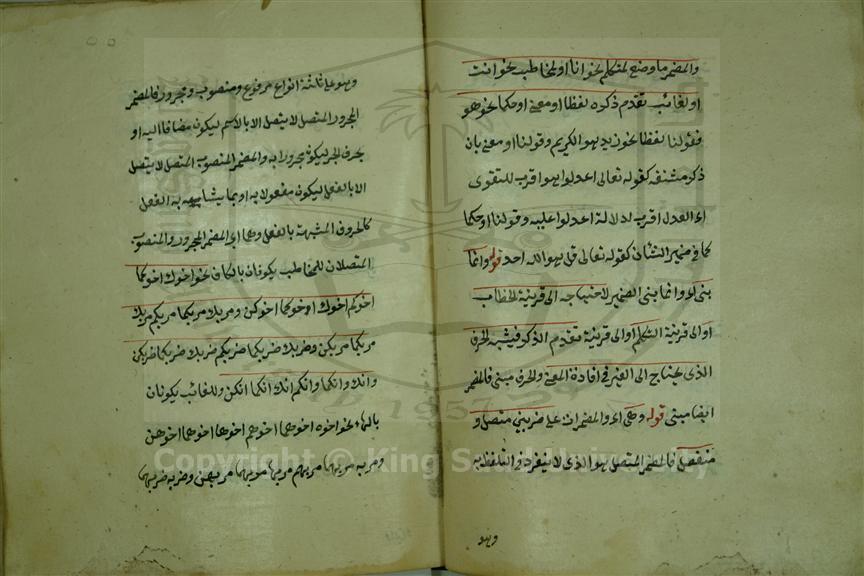 والمضمر ما وضع لمتكلم نحو انا او لمخاطب نحو انت
او لغائب تقدم ذكره لفظا او معنى او حكما نحو هو
فقولنا لفظا نحو زيد هو الكريم وقولنا او معنى بان
ذكر مشتقه كقوله تعالى اعدلوا هو اقرب للتقوى
اى العدل اقرب لدلالة اعدلوا عليه وقولنا او حكما
كما فى ضمير الشان كقوله تعالى قل هو الله احد قوله وانما
بنى اى وانما بنى الضمير لاحتياجه الى قرينة الخطاب
او الى قرينة التكلم او الى قرينة تقدم الذكر فيشبه الحرف
الذى يحتاج الى الغير فى افادة المعنى والحرف مبنى فالمضمر
ايضا مبنى قوله وهى اى والمضمرات على ضربين متصل و
منفصل فالمضمر المتصل هو الذى لا ينفرد والتلفظ به
وهو
وهو على ثلثة انواع مرفوع ومنصوب ومجرور فالمضمر
المجرور المتصل لا يتصل الا بالاسم ليكون مضافا اليه او
بحرف الجر ليكون مجرورا به والمضمر المنصوب المتصل لا يتصل
الا بالفعل ليكون مفعولا به او بما يشابهه به الفعل
كالحروف المشبهة بالفعل وهما اى المضمر المجرور والمنصوب
المتصلان للمخاطب يكونان بالكاف نحو اخوك اخوكما
اخوكم اخوك اخوكما اخوكن ومر بك مر بكما مر بكم مر بك
مر بكما مر بكن وضربك ضربكما ضربكم ضربك ضربكما ضربكن
وانك وانكما وانكم انك انكما انكن وللغائب يكونان
بالهاء نحو اخوه اخوهما اخوهم اخوها اخوهما اخوهن
ومر به مر بهما مر بهم مر بها مر بهما مر بهن وضربه ضربهما
Copyright © King Saud University
1957